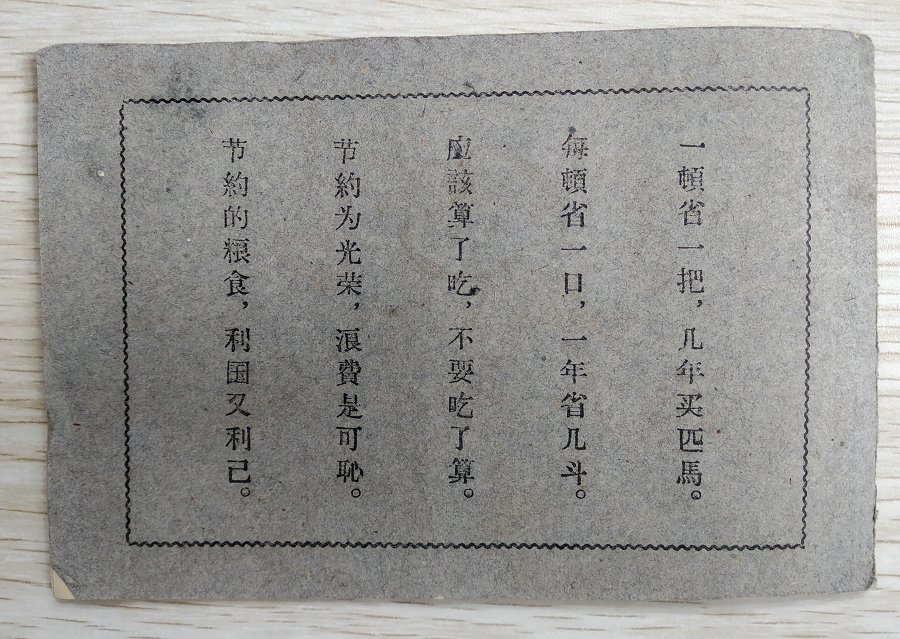 一頓省一把，几年买匹馬。
每頓省一口，一年省几斗。
应該算了吃，不要吃了算。
节約为光荣，浪費是可恥。
节約的粮食，利国又利己。